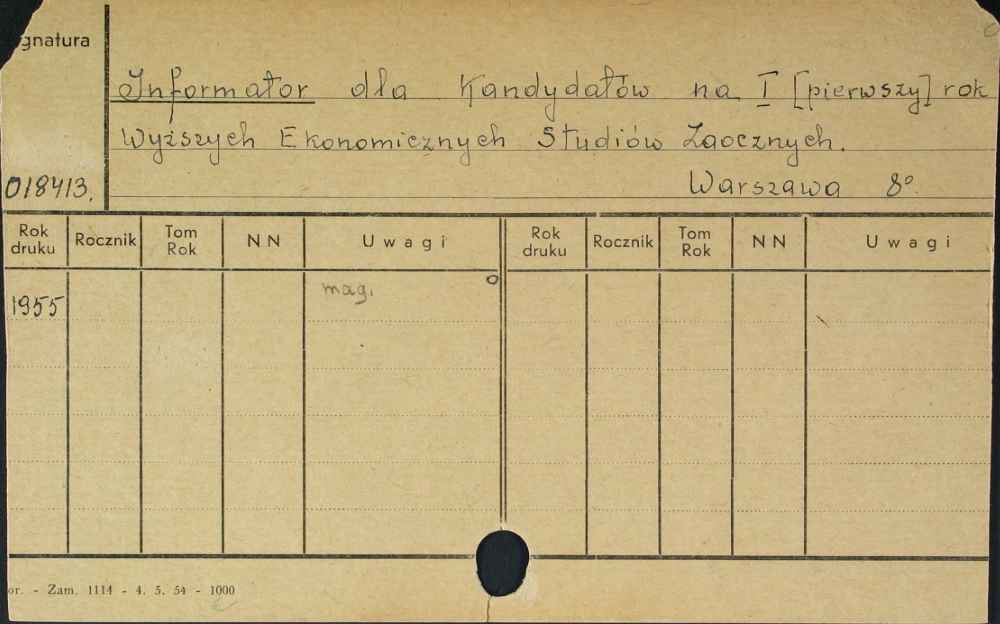 gnatura
Informator dla Kandydatów na I [pierwszy] rok
Wyższych Ekonomicznych Studiów Zaocznych.
018413.
Warszawa 8°.
Rok druku Rocznik Tom Rok NN Uwagi Rok druku Rocznik Tom Rok NN Uwagi
1955 mag.
or. - Zam. 1114 - 4. 5. 54 - 1000